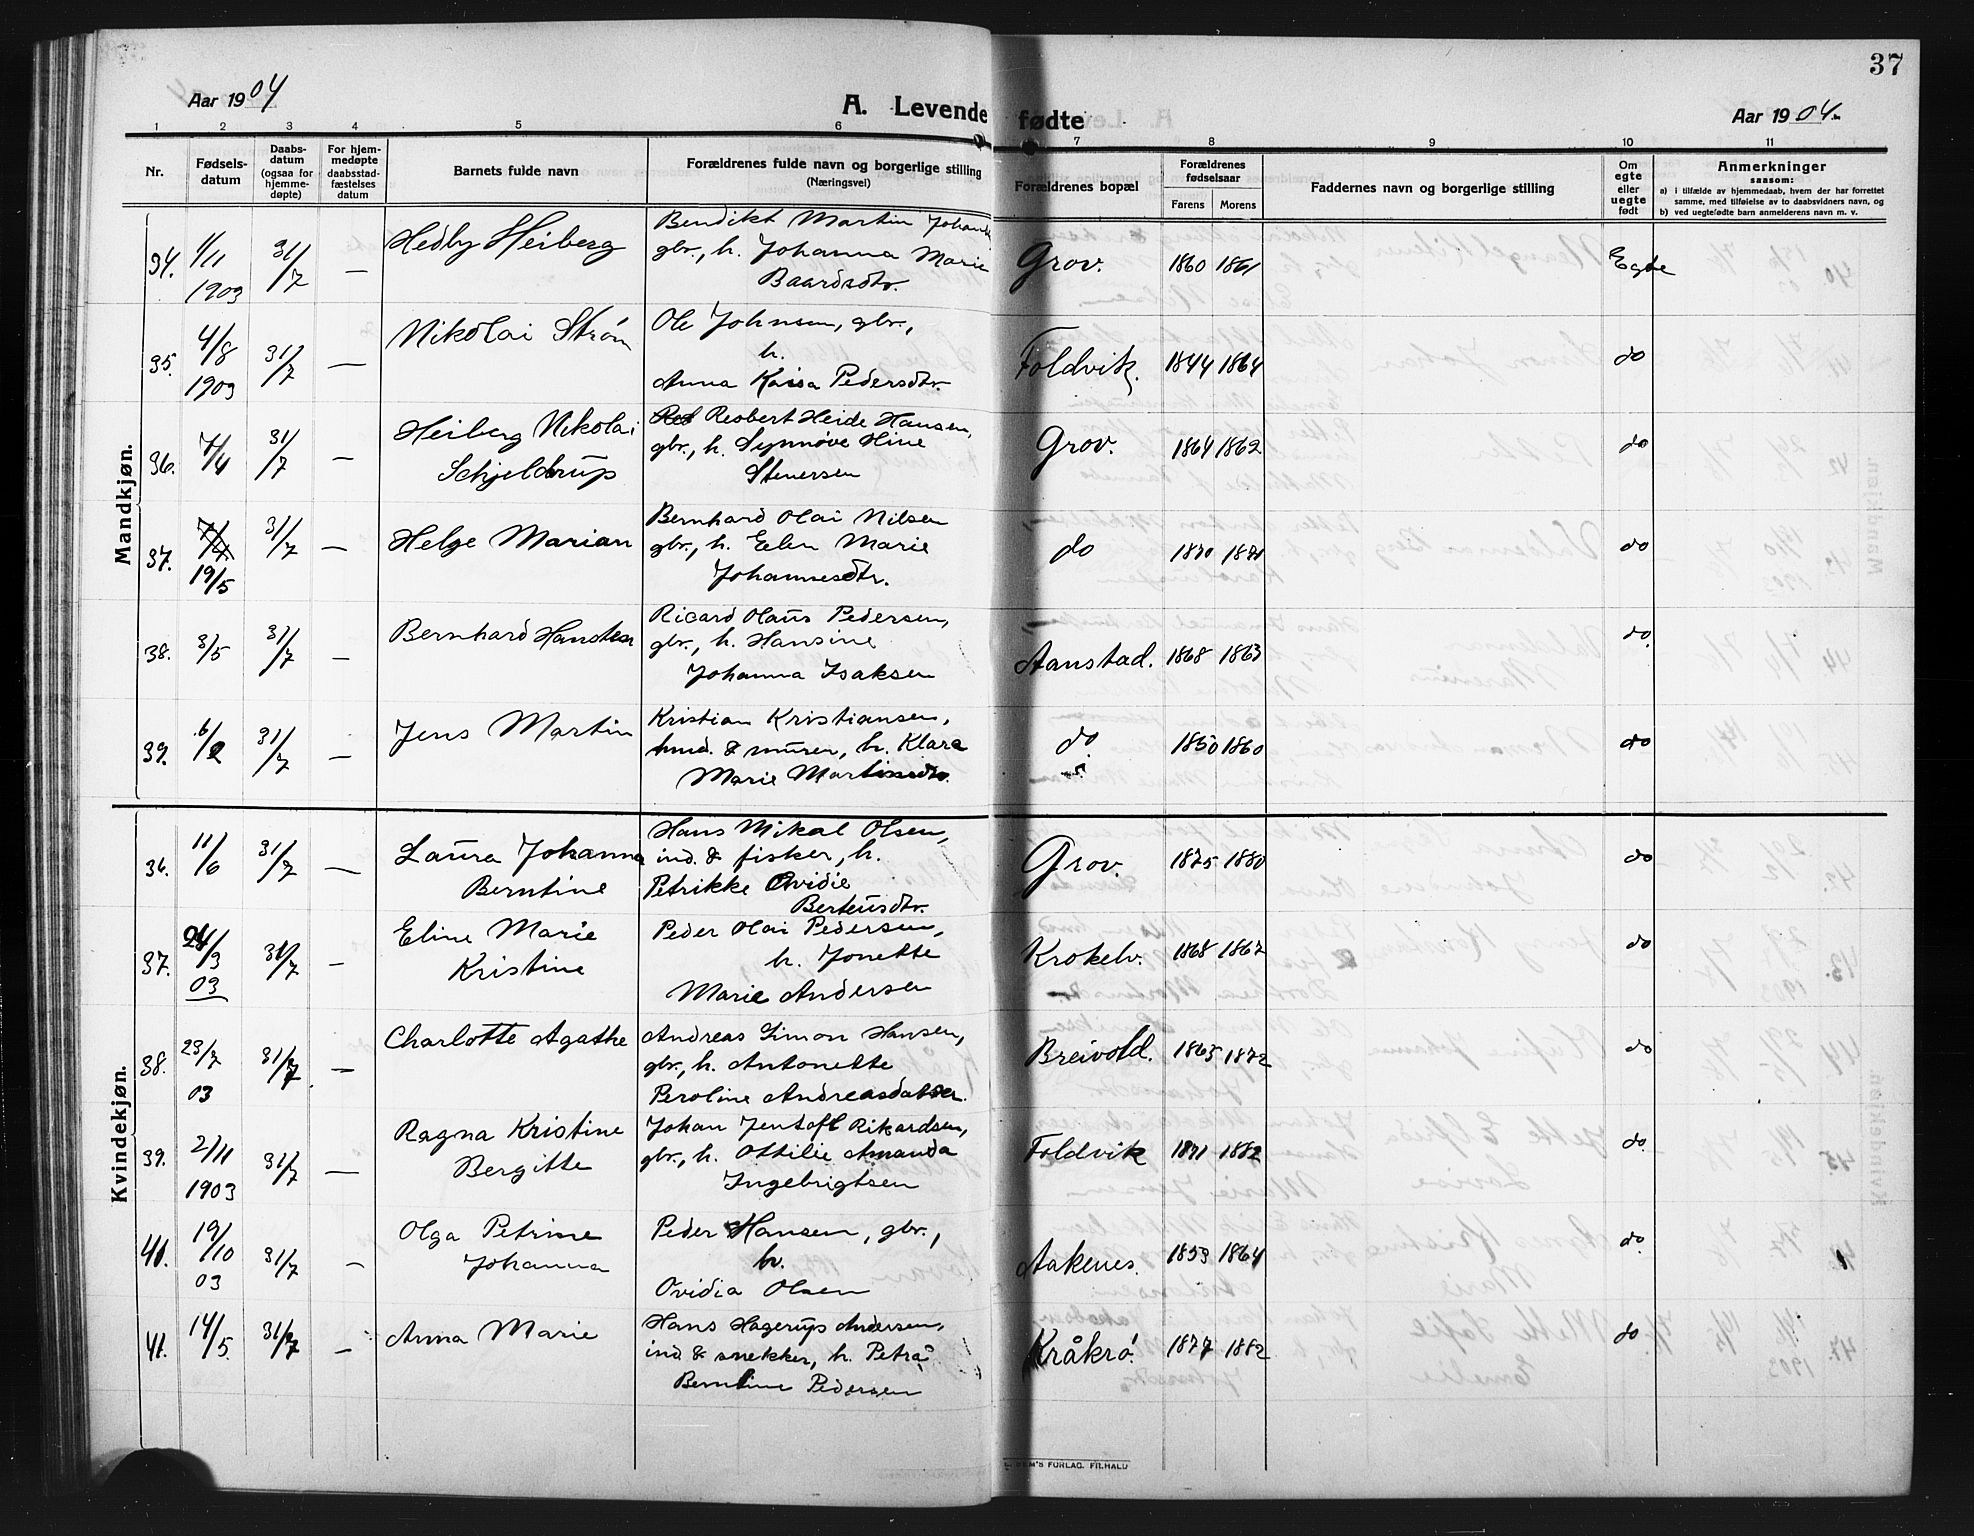 37
Aar 1904
A. Levende fødte
Aar 1904.
1 2 3 4 5 6 7 8 9 10 11
Nr.
Fødsels-
datum
Daabs-
datum
(ogsaa for
hjemme-
døpte)
For hjem-
medøpte
daabsstad-
fæstelses
datum
Barnets fulde navn
Forældrenes fulde navn og borgerlige stilling
(Næringsvei)
Forældrenes bopæl
Forældrenes
fødselsaar
Farens Morens
Faddernes navn og borgerlige stilling
Om
egte
eller
uegte
født
Anmerkninger
saasom:
a) i tilfælde av hjemmedaab, hvem der har forrettet
samme, med tilføielse av to daabsvidners navn, og
b) ved uegtefødte barn anmelderens navn m. v.
Mandkjøn.
34. 1/11 1903 31/7 — Hedly Heiberg
Bendikt Martin
gbr., h. Johanna Marie
Baardsdtr.
Grov. 1860 1861 Egte
35. 4/8 1903 31/7 — Nikolai Strøm
Ole Johnsen, gbr.,
h.
Anna Kaisa Pedersdtr.
Foldvik. 1844 1864 do
36. 7/4 31/7 — Heiberg Nikolai
Schjeldrup
Reobert Heide Hansen,
gbr., h. Synnøve Hine
Stenersen
Grov. 1864 1862 do
37. 7/4 19/5 31/7 — Helge Marian
Bernhard Olai Nilsen
gbr., h. Elen Marie
Johannesdtr.
do 1870 1871 do
38. 3/5 31/7 — Bernhard Hansteen
Ricard Olaus Pedersen,
gbr., h. Hansine
Johanna Isaksen
Aanstad. 1868 1863 do
39. 6/2 31/7 — Jens Martin
Kristian Kristiansen,
hmd. & murer, h. Klara
Marie Martinsdtr.
do 1850 1860 do
Kvindekjøn.
36. 11/6 31/7 — Laura Johanna
Berntine
Hans Mikal Olsen,
ind. & fisker, h.
Petrikke Ovidie
Berteusdtr.
Grov. 1875 1880 do
37. 24/3 03 31/7 — Eline Marie
Kristine
Peder Olai Pedersen,
h. Jonette
Marie Andersen
Krokelv. 1868 1867 do
38. 23/7 03 31/7 — Charlotte Agathe
Andreas Simon Hansen,
gbr., h. Antonette
Peroline Andreasdatter.
Breivold. 1865 1872 do
39. 2/11 1903 31/7 — Ragna Kristine
Bergitte
Johan Jentoft Rikardsen,
gbr., h. Ottilie Amanda
Ingebrigtsen
Foldvik 1871 1882 do
40. 19/10 03 31/7 — Olga Petrine
Johanna
Peder Hansen, gbr.,
h.
Ovidia Olsen
Aakenes. 1853 1864 do
41. 14/5. 31/7 — Anna Marie
Hans Hagerup Andersen,
ind. & snekker, h. Petra
Berntine Pedersen
Kråkrø. 1877 1882 do
FORLAG. FR.HALD